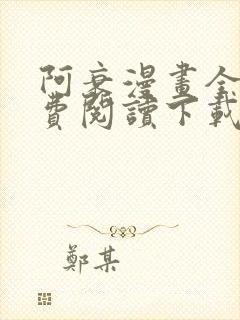 阿衰漫畫全
費閱讀下載
鄭某